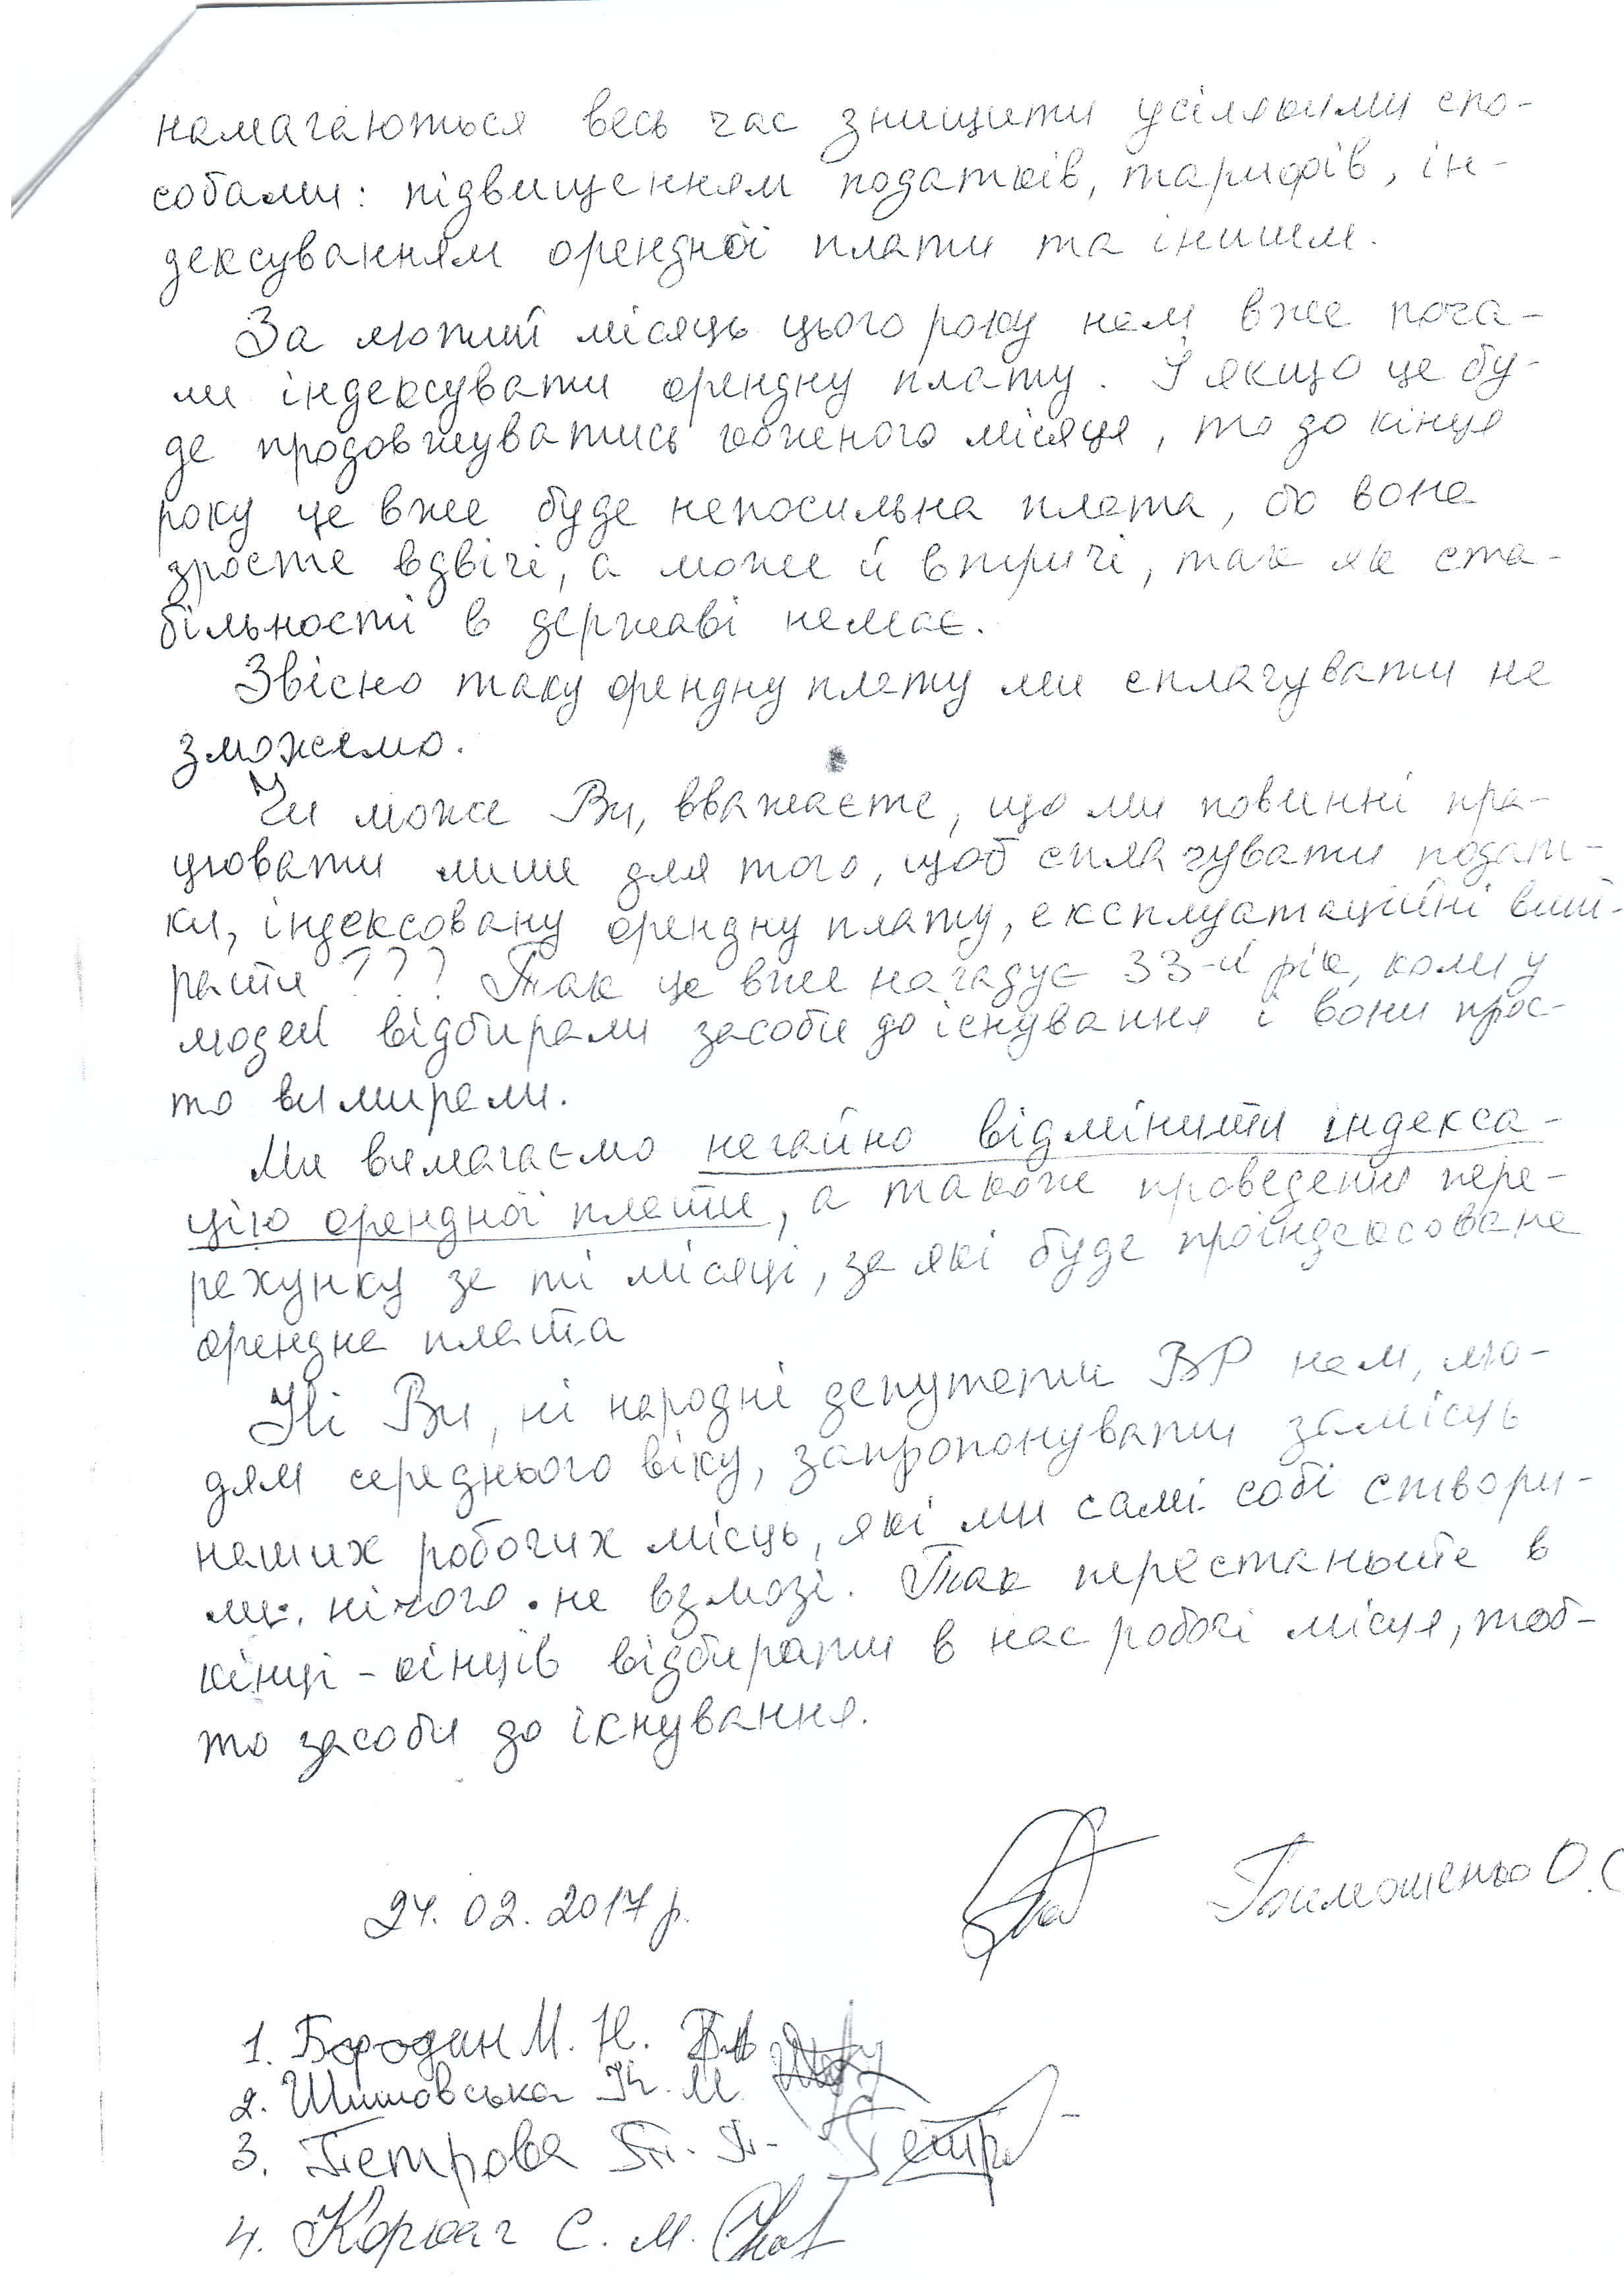 намагаються весь час знищити усілякими спо-
собами: підвищенням податків, тарифів, ін-
дексуванням орендної плати та іншим.
За лютий місяць цього року нам вже поча-
ли індексувати орендну плату. І якщо це бу-
де продовжуватись кожного місяця, то до кінця
року це вже буде непосильна плата, бо вона
зросте вдвічі, а може й втричі, так як ста-
більності в державі немає.
Звісно таку орендну плату ми сплачувати не
зможемо.
Чи може Ви, вважаєте, що ми повинні пра-
цювати лише для того, щоб сплачувати подат-
ки, індексовану орендну плату, експлуатаційні вит-
рати ??? Так це вже нагадує 33-й рік, коли у
людей відбирали засоби до існування і вони прос-
то вимирали.
Ми вимагаємо негайно відмінити індекса-
цію орендної плати, а також проведення пере-
рахунку за ті місяці, за які буде проіндексована
орендна плата
Ні Ви, ні народні депутати ВР нам, лю-
дям середнього віку, запропонувати замісць
наших робочих місць, які ми самі собі створи-
ли. нічого не взмозі. Так перестаньте в
кінці-кінців відбирати в нас робочі місця, тоб-
то засоби до існування.
24.02.2017р. Тимошенко О.
1. Бородин М. Н.
2. Шишовська М.
3. Петрова Т. П. Петр
4. Корюаг С. М.